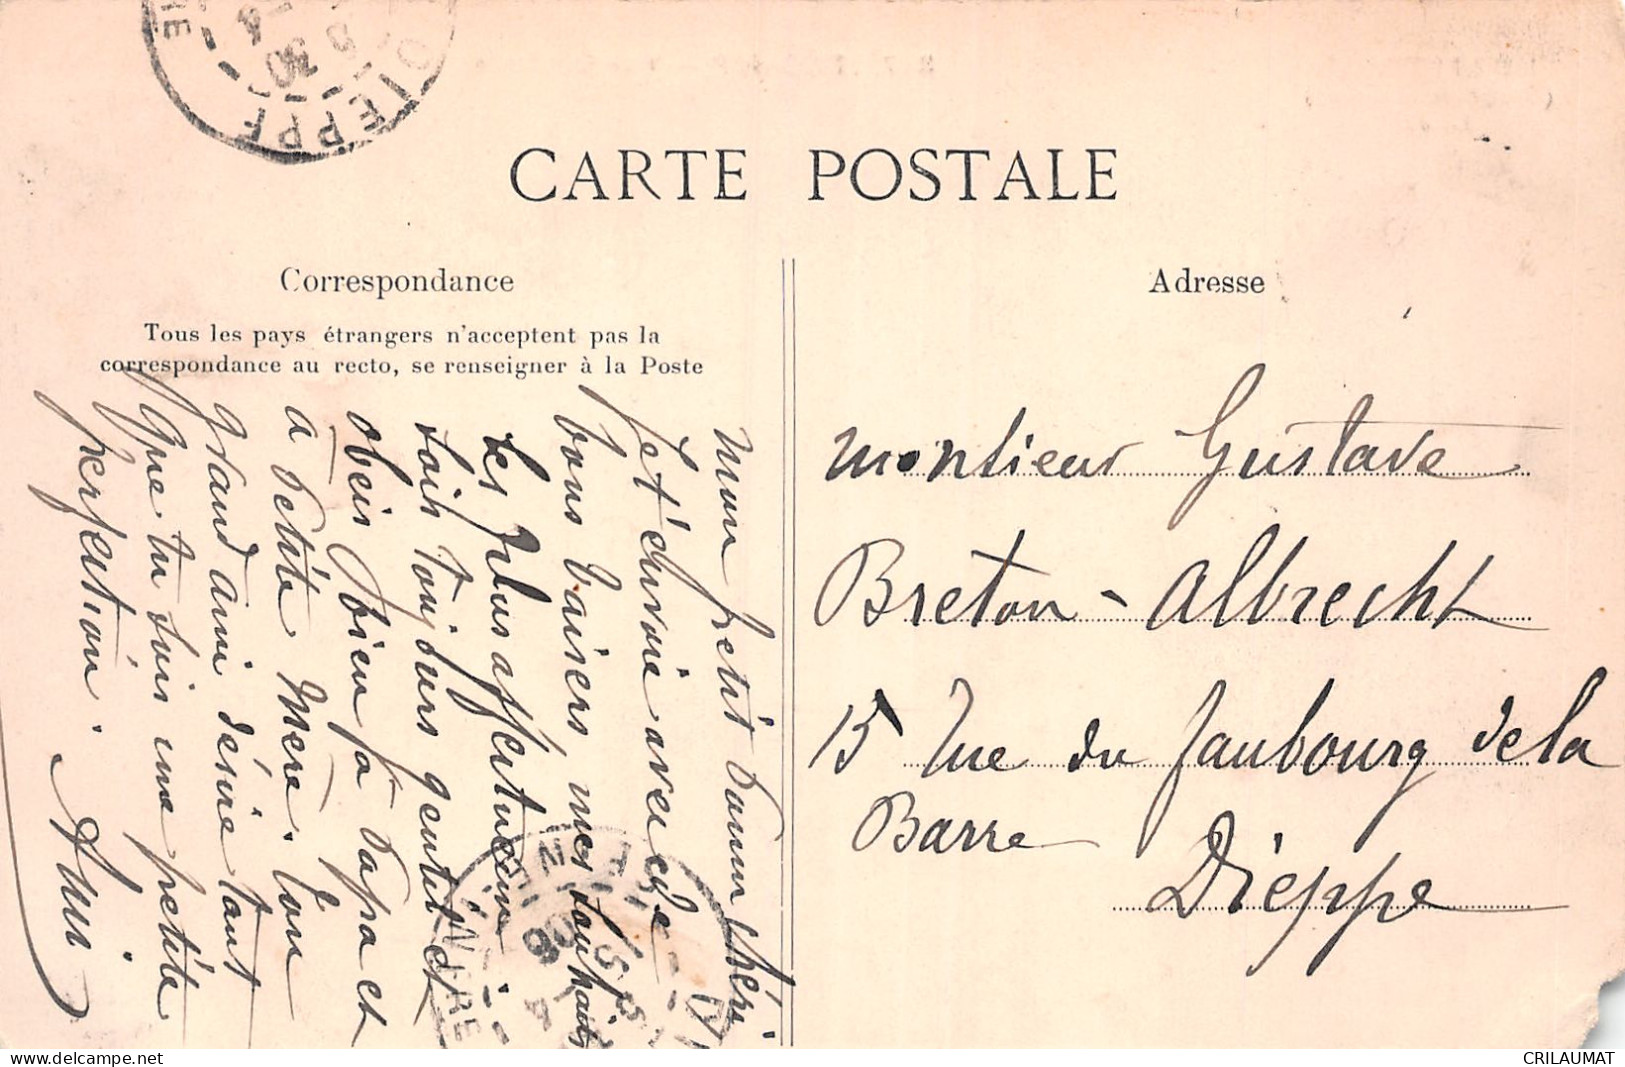 DIEPPE
30
CARTE POSTALE
Correspondance
Tous les pays étrangers n'acceptent pas la
correspondance au recto, se renseigner à la Poste
Adresse
Mon petit Tonton chéri
Je t'envoie avec de
bons baisers, mes souhaits
les plus affectueux.
Sois toujours gentil et
obéis bien à Papa et
à Petite Mère. Ton
grand ami désire tant
que tu sois une petite
perfection.
Ami
Monsieur Gustave
Breton-Albrecht
15 Rue du faubourg de la
Barre
Dieppe
INFRE
delcampe.net
CRILAUMAT